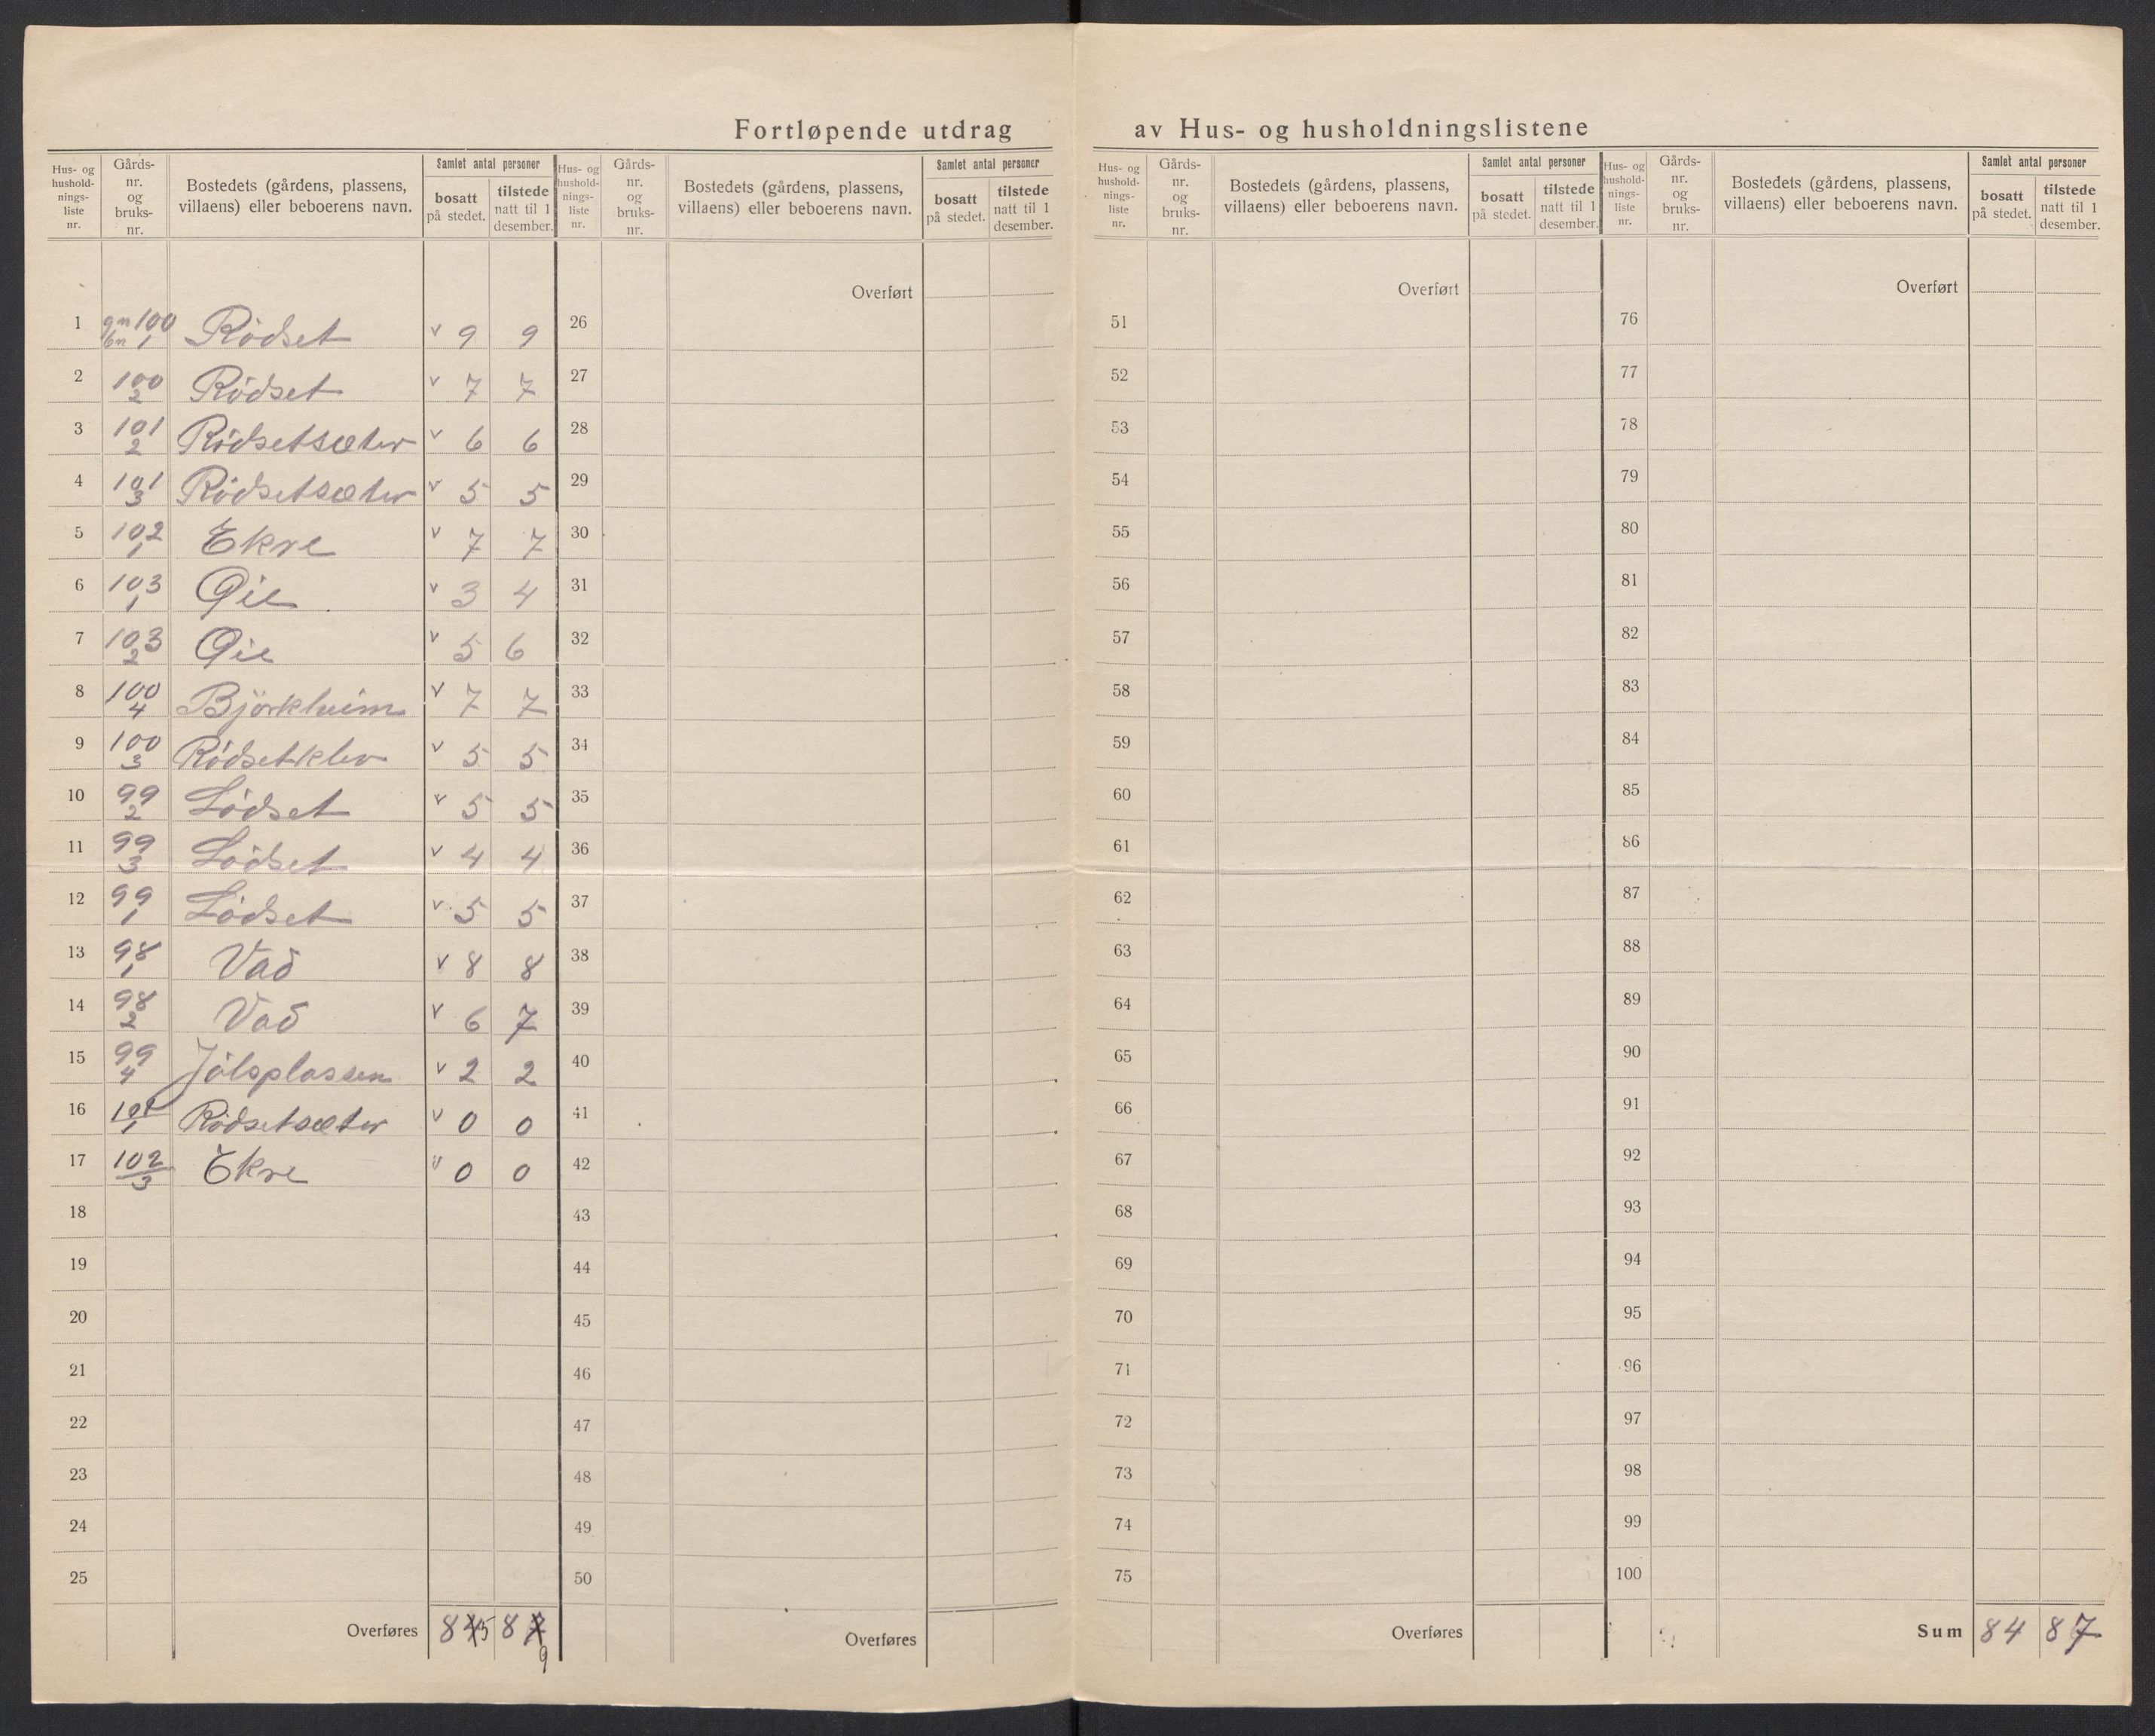 Fortløpende utdrag av Hus- og husholdningslistene
Hus- og hushold-nings-liste nr. Gårds-nr. og bruks-nr. Bostedets (gårdens, plassens, villaens) eller beboerens navn. Samlet antal personer bosatt på stedet. tilstede natt til 1 desember.
1 gn 100 bn 1 Rødset v 9 9
2 100 2 Rødset v 7 7
3 101 2 Rødsetsæter v 6 6
4 101 3 Rødsetsæter v 5 5
5 102 1 Ekre v 7 7
6 103 1 Øie v 3 4
7 103 2 Øie v 5 6
8 100 4 Björkheim v 7 7
9 100 3 Rødsetklev v 5 5
10 99 2 Lødset v 5 5
11 99 3 Lødset v 4 4
12 99 1 Lødset v 5 5
13 98 1 Vad v 8 8
14 98 2 Vad v 6 7
15 99 4 Jölsplassen v 2 2
16 101 1 Rødsetsæter v 0 0
17 102 3 Ekre v 0 0
18
19
20
21
22
23
24
25
Overføres 845 87 9
Hus- og hushold-nings-liste nr. Gårds-nr. og bruks-nr. Bostedets (gårdens, plassens, villaens) eller beboerens navn. Samlet antal personer bosatt på stedet. tilstede natt til 1 desember.
Overført
26
27
28
29
30
31
32
33
34
35
36
37
38
39
40
41
42
43
44
45
46
47
48
49
50
Overføres
Hus- og hushold-nings-liste nr. Gårds-nr. og bruks-nr. Bostedets (gårdens, plassens, villaens) eller beboerens navn. Samlet antal personer bosatt på stedet. tilstede natt til 1 desember.
Overført
51
52
53
54
55
56
57
58
59
60
61
62
63
64
65
66
67
68
69
70
71
72
73
74
75
Overføres
Hus- og hushold-nings-liste nr. Gårds-nr. og bruks-nr. Bostedets (gårdens, plassens, villaens) eller beboerens navn. Samlet antal personer bosatt på stedet. tilstede natt til 1 desember.
Overført
76
77
78
79
80
81
82
83
84
85
86
87
88
89
90
91
92
93
94
95
96
97
98
99
100
Sum 84 87